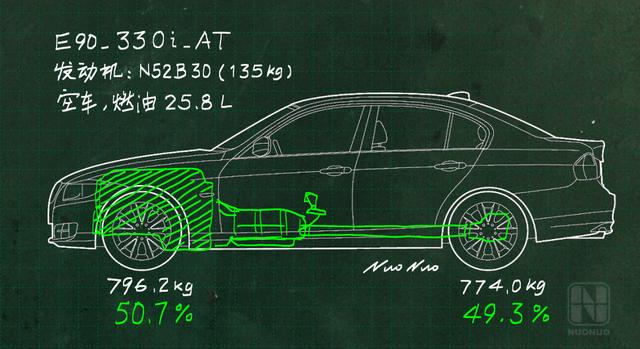 E90_330i_AT
发动机：N52B30（135kg）
空车，燃油 25.8L
NuoNuo
796.2kg
774.0kg
50.7%
49.3%
N
NUONUO